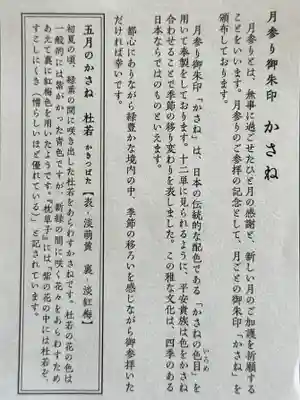 月参り御朱印　かさね
月参りとは、無事に過ごせたひと月の感謝と、新しい月のご加護を祈願する
ことをいいます。月参りのご参拝の記念として、月ごとの御朱印「かさね」を
頒布しております。
月参り御朱印「かさね」は、日本の伝統的な配色である「かさねの色目」を
いろめ
用いて奉製をしております。十二単に見られるように、平安貴族は色をかさね
合わせることで季節の移り変わりを表しました。この雅な文化は、四季のある
日本ならではのものといえます。
都心にありながら緑豊かな境内の中、季節の移ろいを感じながら御参拝いた
だければ幸いです。
五月のかさね　杜若　かきつばた【表‐淡萌黄　裏‐淡紅梅】
初夏の頃、緑葉の間に咲き出した杜若をあらわすかさねです。杜若の花の色は
一般的には紫がかった青色ですが、新緑の間に咲く花々をあらわすため
あえて裏に紅梅色を用いたようです。『枕草子』には「紫の花の中には杜若を、
すこしにくき（憎らしいほど優れている）」と記されています。